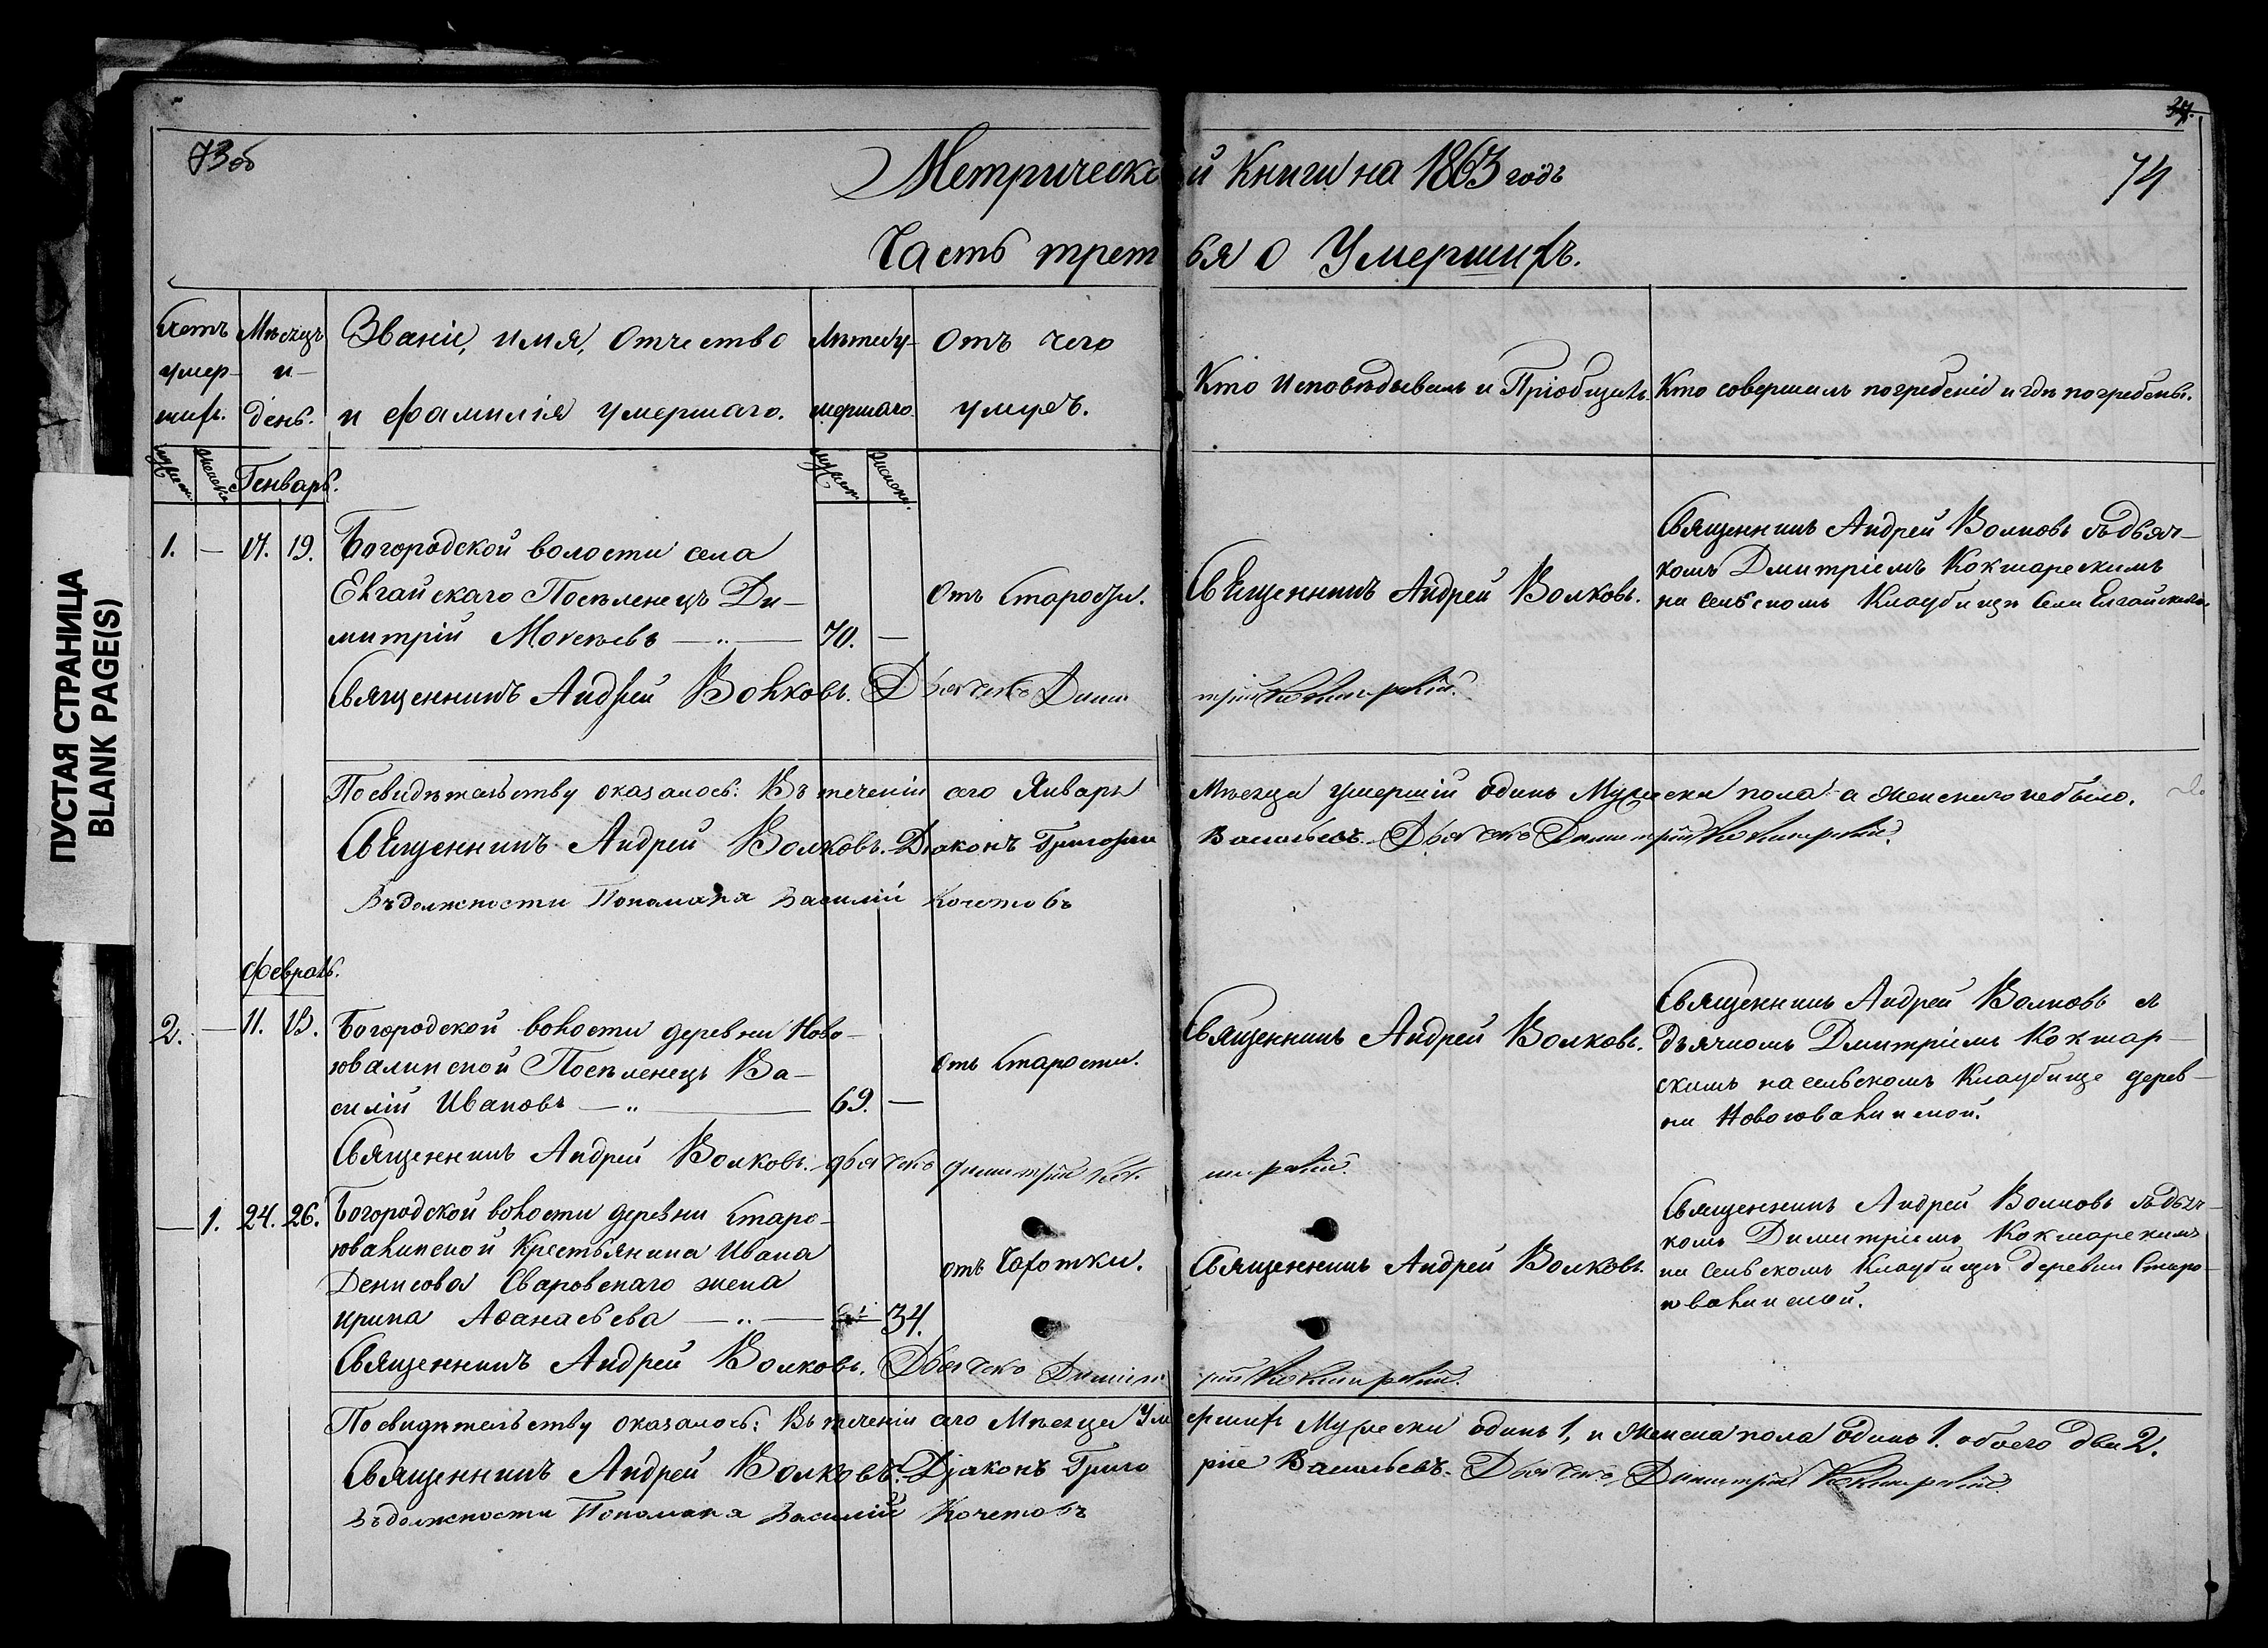 ПУСТАЯ СТРАНИЦА
BLANK PAGE(S)
73об
74
Метрической Книги на 1863 годъ
Часть третья о Умершихъ.
Счетъ умер-шихъ.
Мѣсяцъ и день.
Званіе, имя, отчество и фамилія умершаго.
Лѣта у-мершаго.
Отъ чего умеръ.
Кто исповѣдывалъ и Пріобщилъ.
Кто совершалъ погребеніе и гдѣ погребены.
Генварь.
1. — 17. 19. Богородской волости села
Елгайскаго Поселенецъ Ди-
митрій Мокеевъ — „ — 70. —
отъ Старости.
Священникъ Андрей Волковъ.
Священникъ Андрей Волковъ съ дьяч-
комъ Дмитріемъ Кокшарскимъ
на сельскомъ Кладбищѣ Села Елгайскаго.
Священникъ Андрей Волковъ. Дьячекъ Димитрій Кокшарскій.
По свидѣтельству оказалось: Въ теченіи сего Января Мѣсяца умершій одинъ Мужеска пола а женскаго небыло.
Священникъ Андрей Волковъ. Діаконъ Григорій Васильевъ. Дьячекъ Димитрій Кокшарскій.
Въ должности Пономаря Василій Кочетовъ
Февраль.
2. — 11. 13. Богородской волости деревни Ново-
ювалинской Поселенецъ Ва-
силій Ивановъ — „ — 69. —
отъ Старости.
Священникъ Андрей Волковъ.
Священникъ Андрей Волковъ съ
дьячкомъ Дмитріемъ Кокшар-
скимъ на сельскомъ Кладбище дерев-
ни Новоювалинской.
Священникъ Андрей Волковъ. дьячекъ димитрій Кокшарскій.
— 1. 24. 26. Богородской волости деревни Старо-
ювалинской Крестьянина Ивана
Денисова Сваровскаго жена
ирина Аѳанасьева — „ — 34.
отъ Чахотки.
Священникъ Андрей Волковъ.
Священникъ Андрей Волковъ съ дьяч-
комъ Димитріемъ Кокшарскимъ
на Сельскомъ Кладбищѣ деревни Старо-
ювалинской.
Священникъ Андрей Волковъ. Дьячекъ Димитрій Кокшарскій.
По свидѣтельству оказалось: Въ теченіи сего Мѣсяца Умершихъ Мужеска одинъ 1, и Женска пола одинъ 1. обоего два 2.
Священникъ Андрей Волковъ. Діаконъ Григорие Васильевъ. Дьячекъ Димитрій Кокшарскій
Въ должности Пономаря Василій Кочетовъ